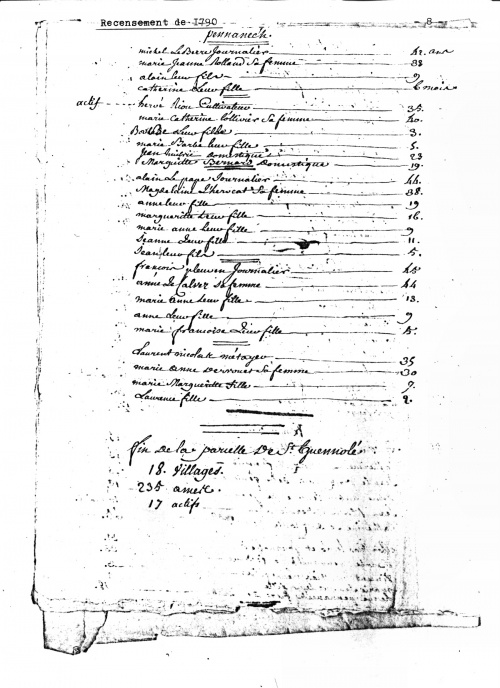 Recensement de 1790 8
pennanech
michel Le Berre Journalier 42. ans
marie Jeanne Rolland Sa femme 38
alain leur fils 9
catherine Leur fille 6 mois
actif hervé Rion Cultivateur 35.
marie catherine Collivier Sa femme 40.
Leur fille 3.
marie Barbe leur fille 5.
Jean Domestique 23
Margueritte Bernard Domestique 19.
alain Le page Journalier 44.
Magdeleine Lhervoet Sa femme 38.
anne leur fille 19
margueritte Leur fille 16.
marie anne Leur fille 9
Jeanne Leur fille 11.
Jean leur fils 5.
françois pleuven Journalier 45
anne Le Calvez Sa femme 44
marie anne Leur fille 13.
anne Leur fille 9
marie françoise Leur fille 5.
Laurent nicolas métayer 35
marie anne Sa femme 30
marie Margueritte fille 7.
Laurence fille 2.
fin de la parcelle De St Guennolé
18. Villages.
235 ames.
17 actifs